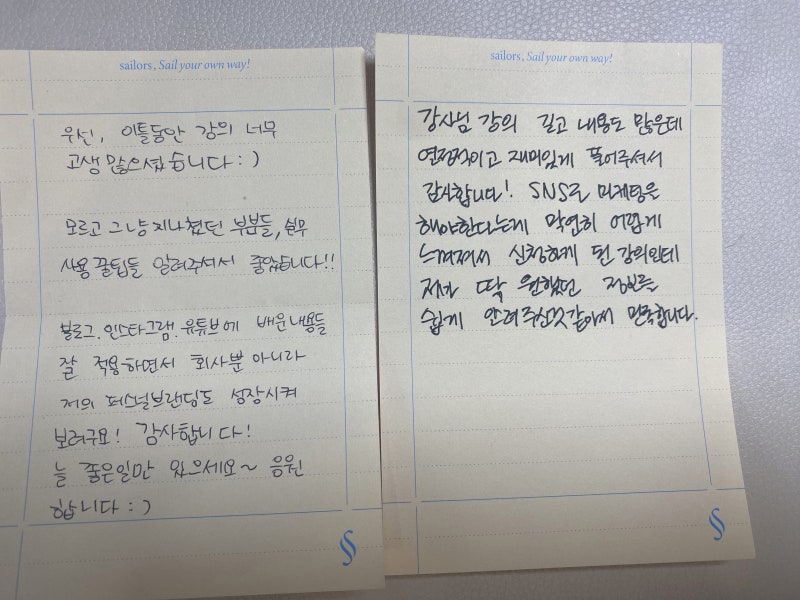 sailors, Sail your own way!
우선, 이틀동안 강의 너무
고생 많으셨습니다 : )
모르고 그냥 지나쳤던 부분들, 실무
사용 꿀팁들 알려주셔서 좋았습니다!!
블로그, 인스타그램, 유튜브에 배운 내용들
잘 적용하면서 회사뿐 아니라
저의 퍼스널브랜딩도 성장시켜
보려구요! 감사합니다!
늘 좋은일만 있으세요~ 응원
합니다 : )
sailors, Sail your own way!
강사님 강의 길고 내용도 많은데
열정적이고 재미있게 풀어주셔서
감사합니다! SNS로 마케팅은
해야한다는게 막연히 어렵게
느껴져서 신청하게 된 강의인데
제가 딱 원했던 정보를
쉽게 알려주신것같아서 만족합니다.